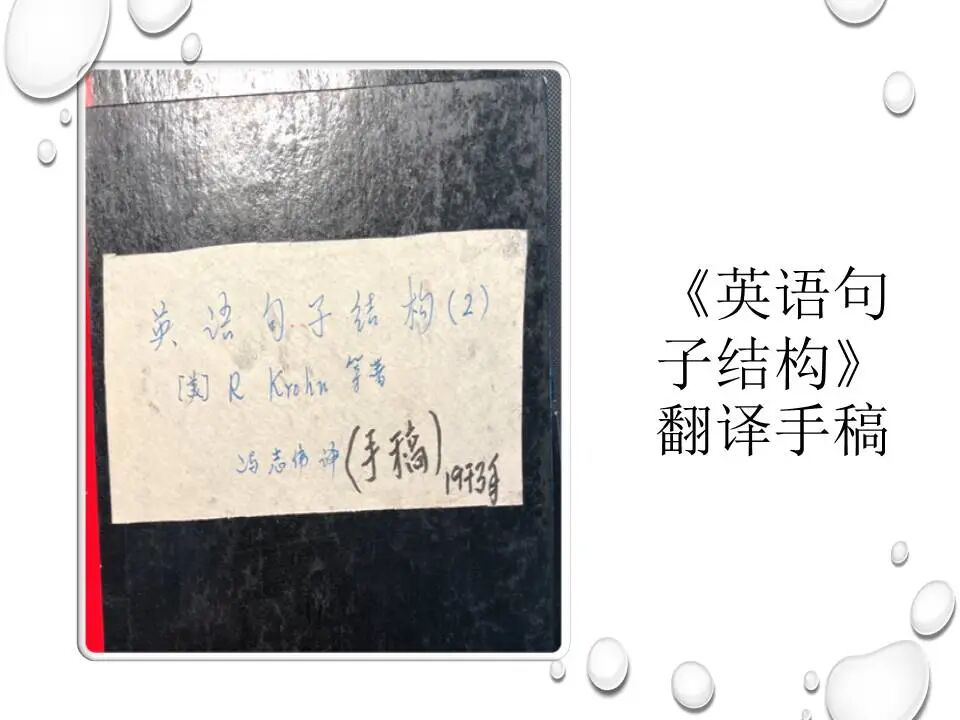 英语句子结构(2)
[美] R Krohn 等著
冯志伟 译 (手稿)
1973年
《英语句
子结构》
翻译手稿